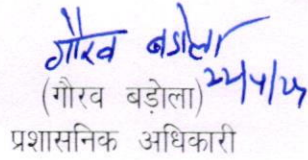 गौरव बडोला
(गौरव बड़ोला)
प्रशासनिक अधिकारी